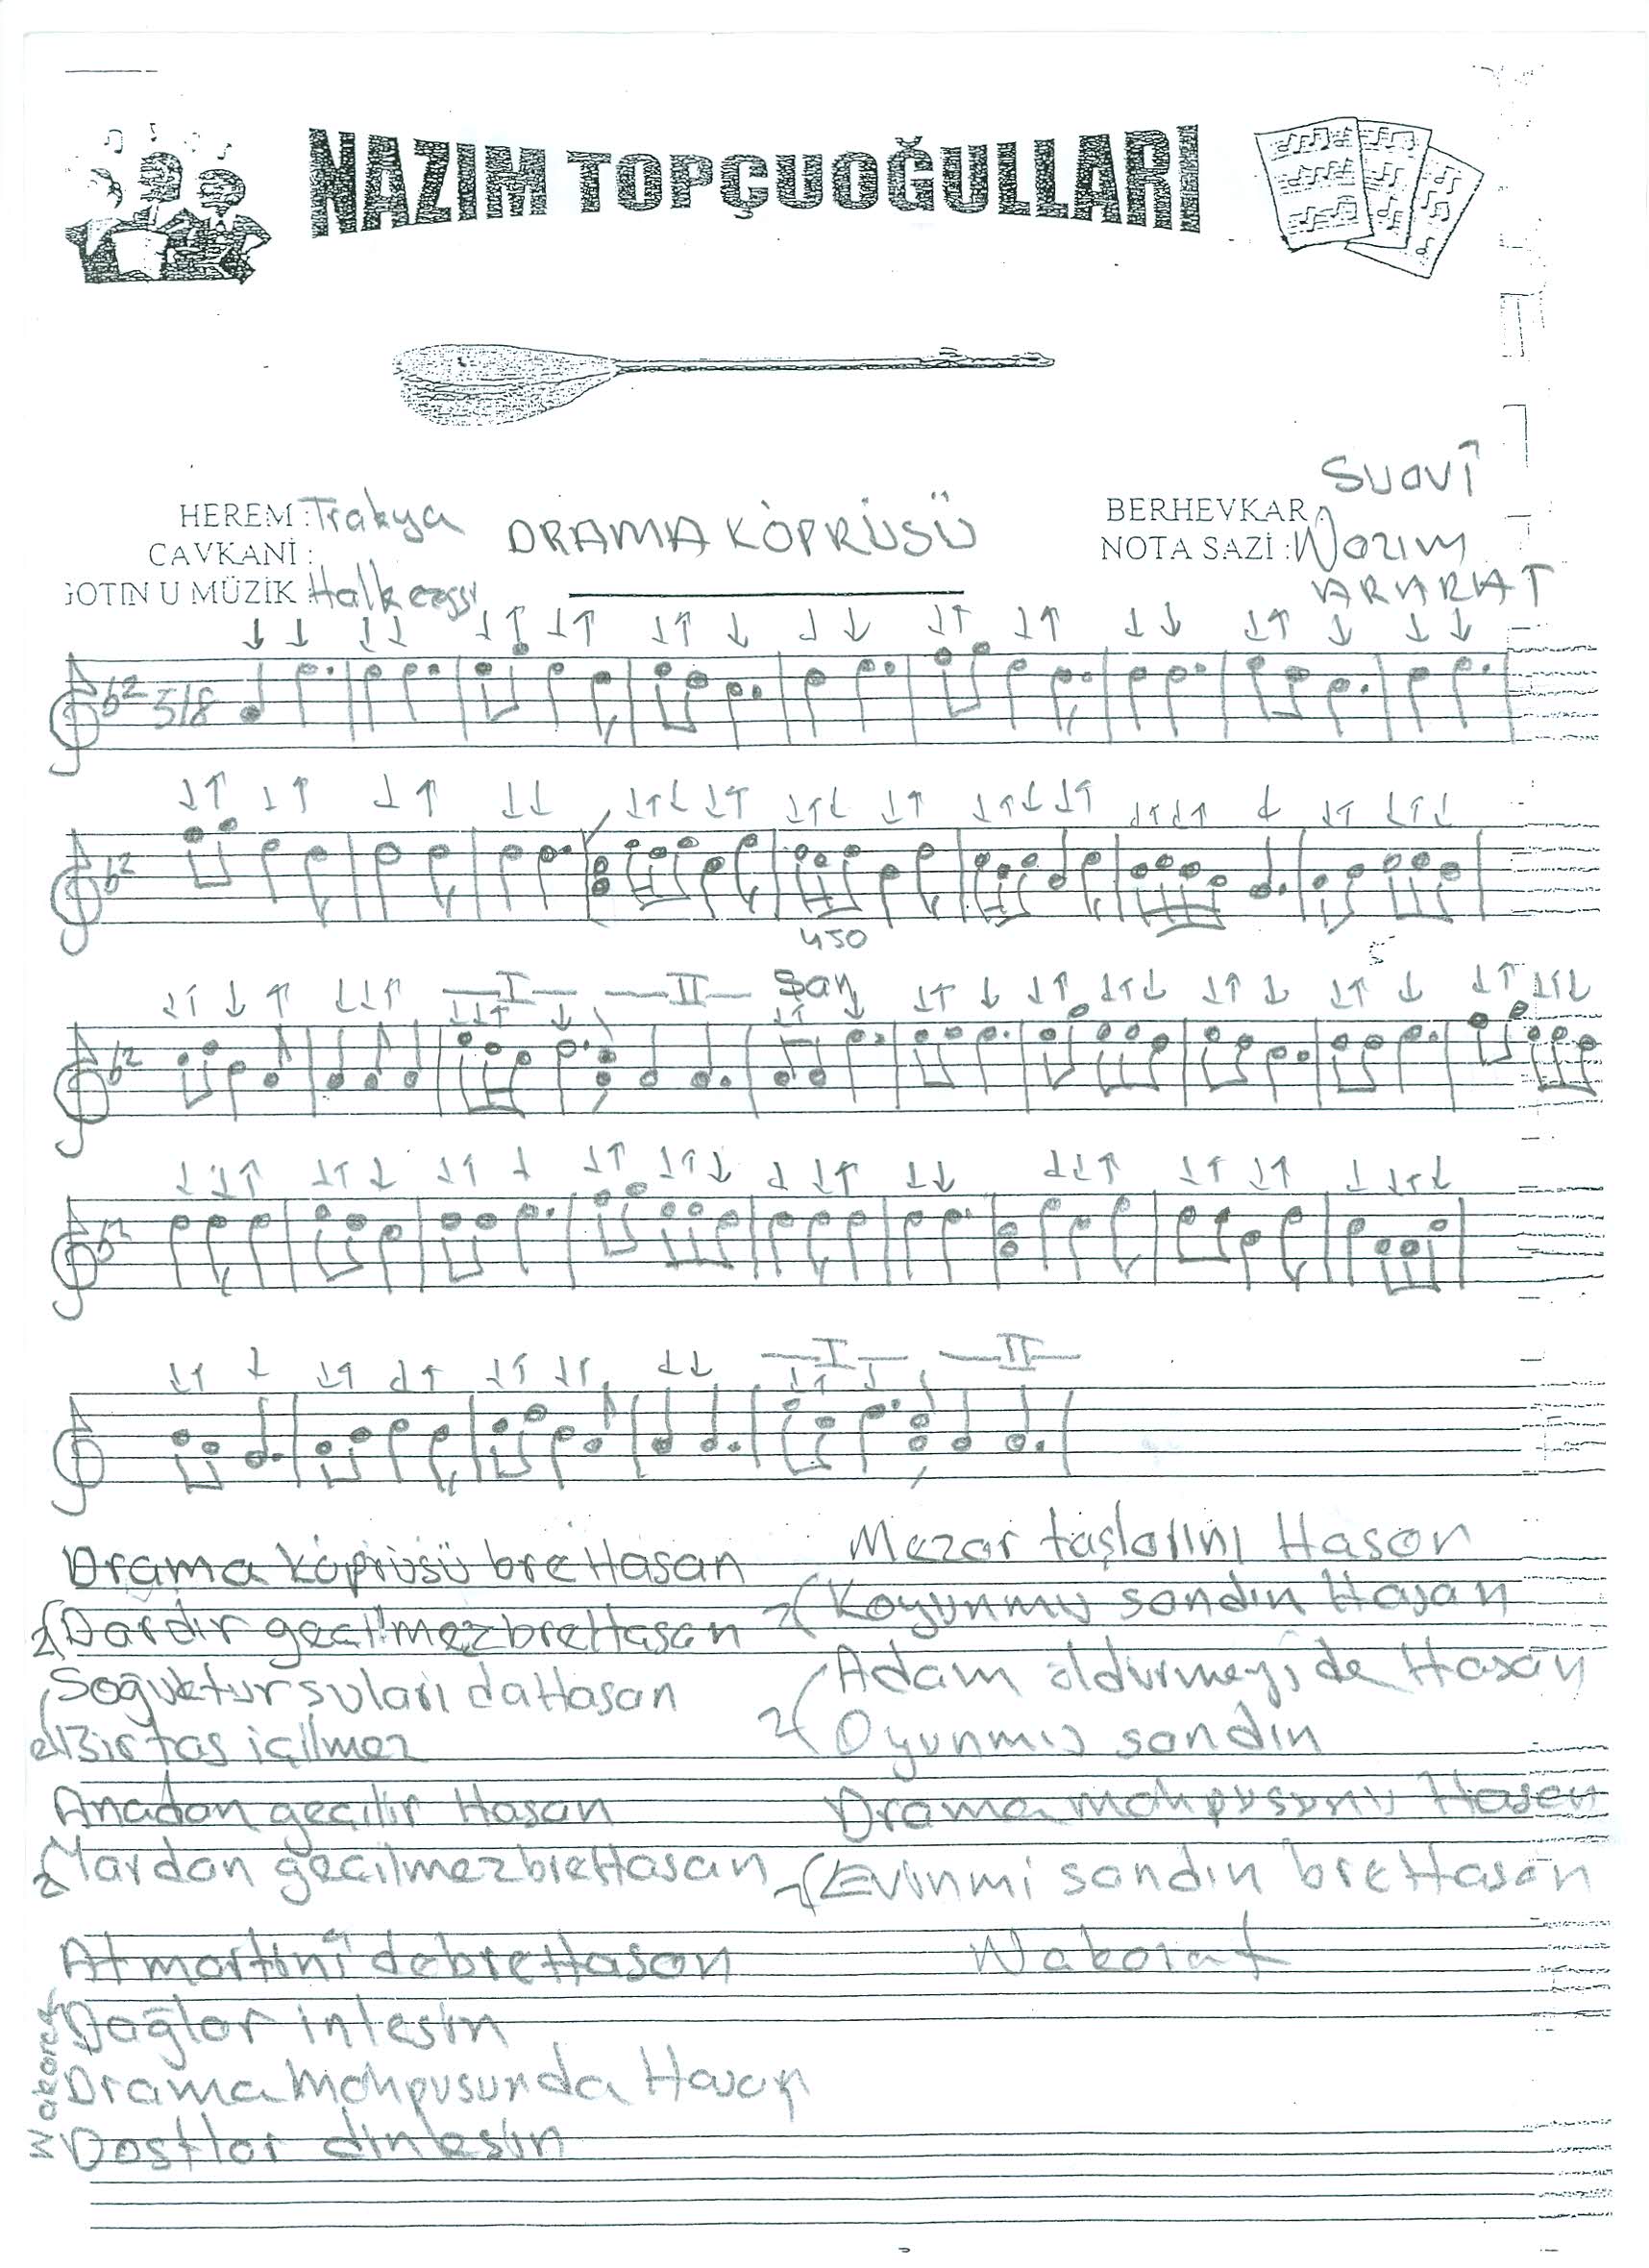 NAZIM TOPÇUOĞULLARI
SUAVİ
HEREM : Trakya
DRAMA KÖPRÜSÜ
BERHEVKAR
CAVKANİ :
NOTA SAZİ : Nazım
GOTIN U MÜZİK : Halk ezgsi
ARARAT
5/8
450
I II Şan
I II
Drama köprüsü bre Hasan
2 Dardır geçilmez bre Hasan
Soğuktur suları da Hasan
2 Bir tas içilmez
Anadan geçilir Hasan
2 Yardan geçilmez bre Hasan
At martini debre Hasan
Dağlar inlesin
Drama mahpusunda Hasan
Dostlar dinlesin
Nakaret
Mezar taşlarını Hasan
2 Koyunmu sandın Hasan
Adam öldürmeyi de Hasan
2 Oyunmu sandın
Drama mahpusunu Hasan
2 Evinmi sandın bre Hasan
Nakarat